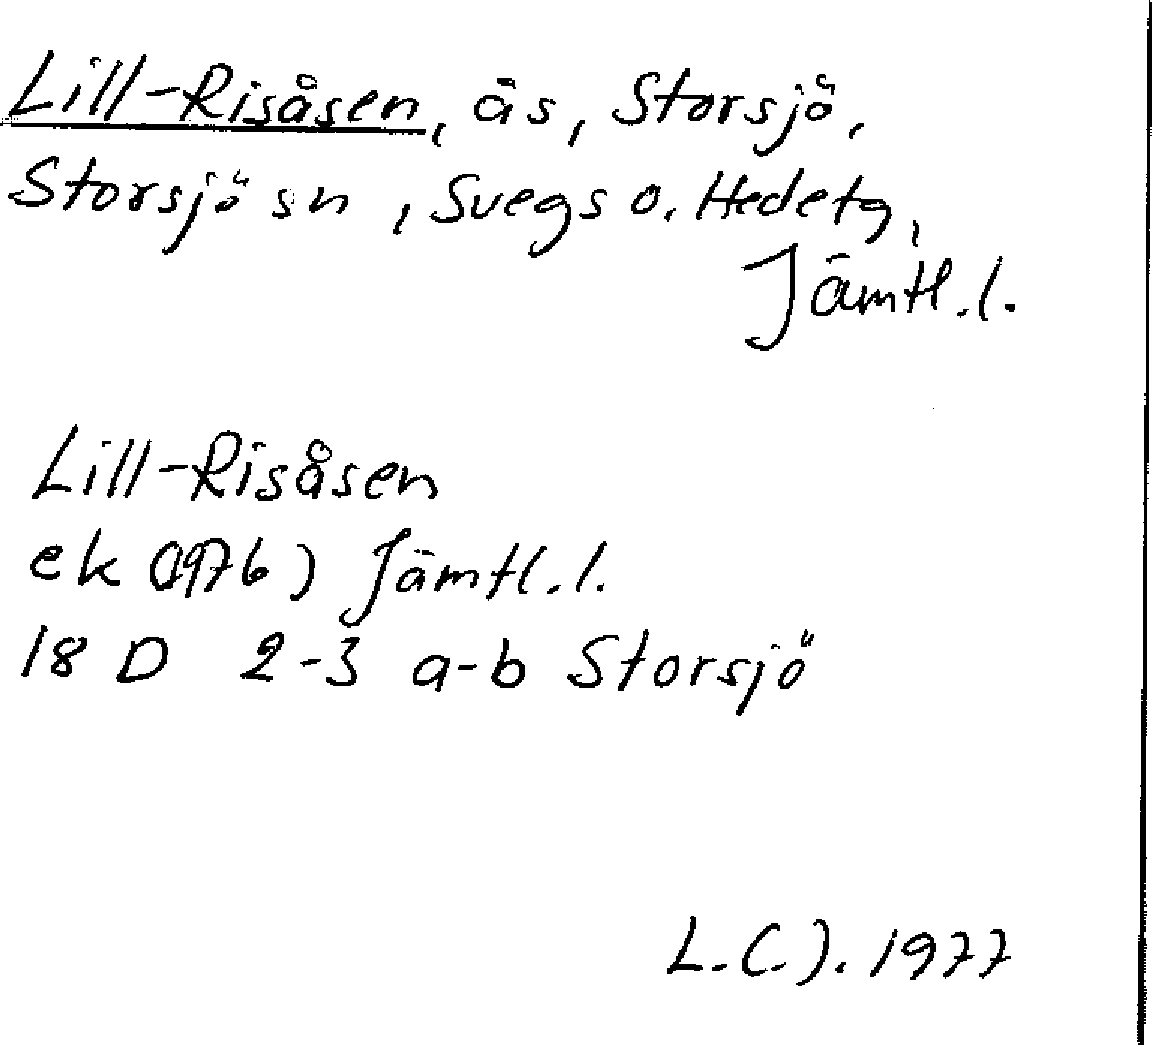 Lill-Risåsen, ås, Storsjö,
Storsjö sn, Svegs o. Hedetg,
Jämtl.l.
Lill-Risåsen
ek (1976) Jämtl.l.
18 D 2-3 a-b Storsjö
L.C.J. 1977